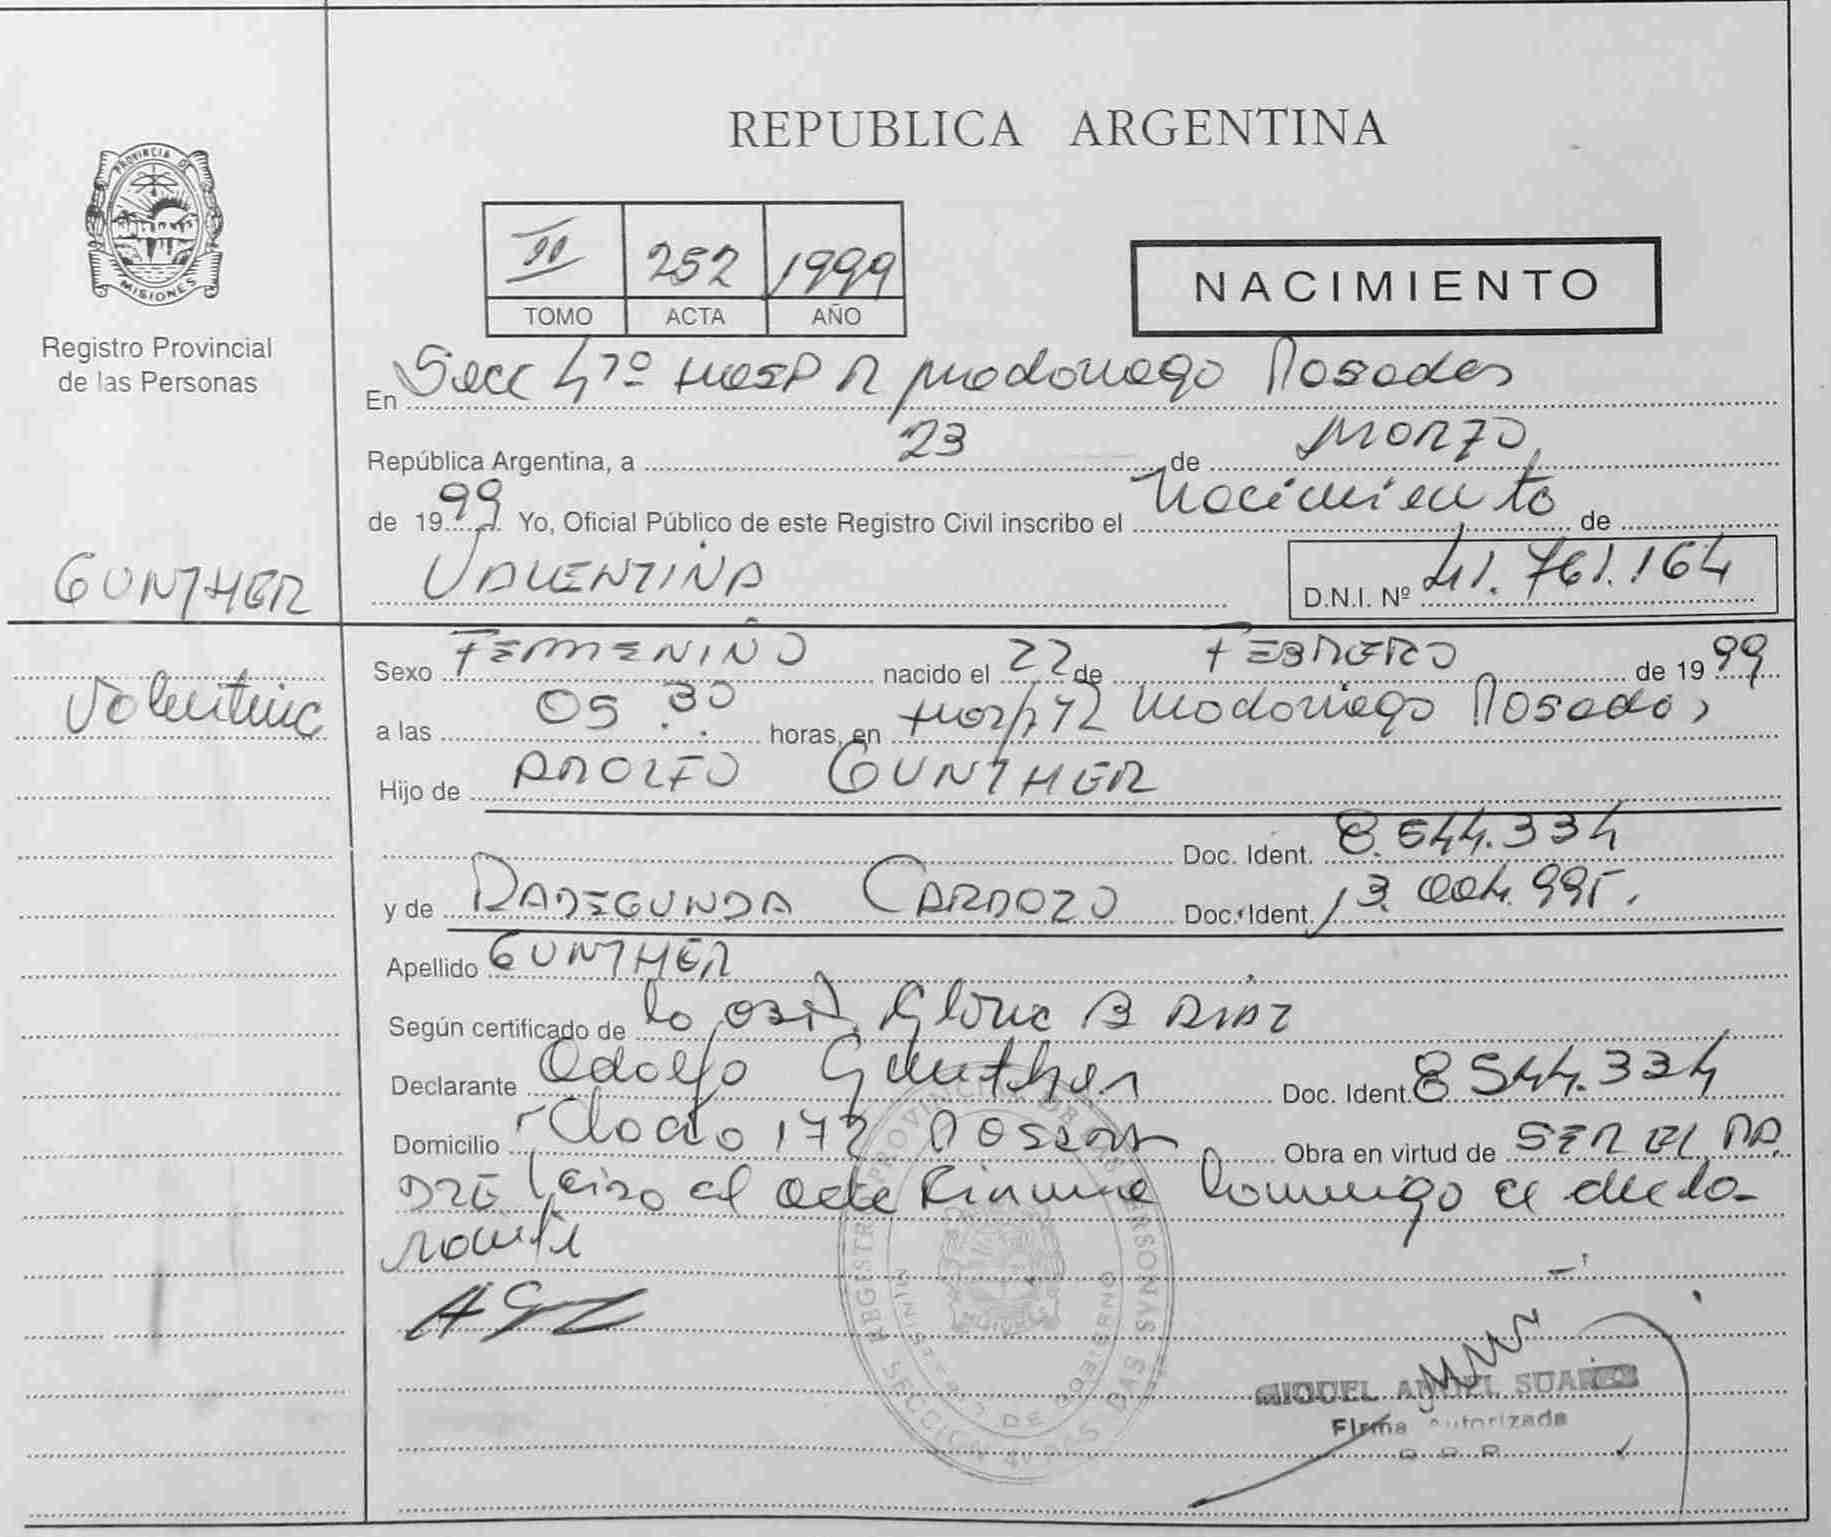 REPUBLICA ARGENTINA
PROVINCIA DE
MISIONES
Registro Provincial
de las Personas
II 252 1999
TOMO ACTA AÑO
NACIMIENTO
En Secc 4ta Hosp R Madariaga Posadas
República Argentina, a 23 de Marzo
de 1999 Yo, Oficial Público de este Registro Civil inscribo el Nacimiento de
GUNTHER VALENTINA D.N.I. Nº 41.761.164
Valentina
Sexo FEMENINO nacido el 22 de FEBRERO de 1999
a las 05:30 horas, en Hosp R Madariaga Posadas
Hijo de ADOLFO GUNTHER
Doc. Ident. 8.544.334
y de RADEGUNDA CARDOZO Doc. Ident. 13.004.995.
Apellido GUNTHER
Según certificado de la Obst. Gloria B DIAZ
Declarante Adolfo Gunther Doc. Ident. 8544.334
Domicilio 172 Obra en virtud de SER EL PA
DRE Leida el acta Firma conmigo el decla-
rante
REGISTRO PROVINCIAL DE LAS PERSONAS
MINISTERIO DE GOBIERNO
SECCION 4ta POSADAS
MIGUEL ANGEL SUAREZ
Firma Autorizada
R.P.P.